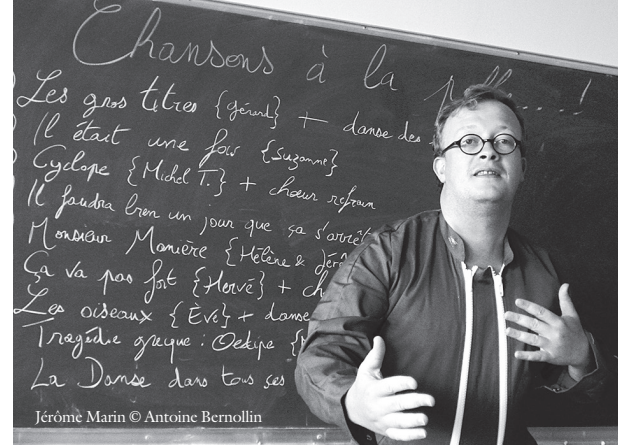 Chansons à la
Les gros titres {Gérard} + danse des
Il était une fois {Suzanne}
Cyclope {Michel T.} + chœur refrain
Il faudra bien un jour que ça s'arrêt
Monsieur Manière {Hélène & Jérô
Ça va pas fort {Hervé} + ch
Les oiseaux {Ève} + danse
Tragédie grecque : Oedipe {
La Danse dans tous ses
Jérôme Marin © Antoine Bernollin